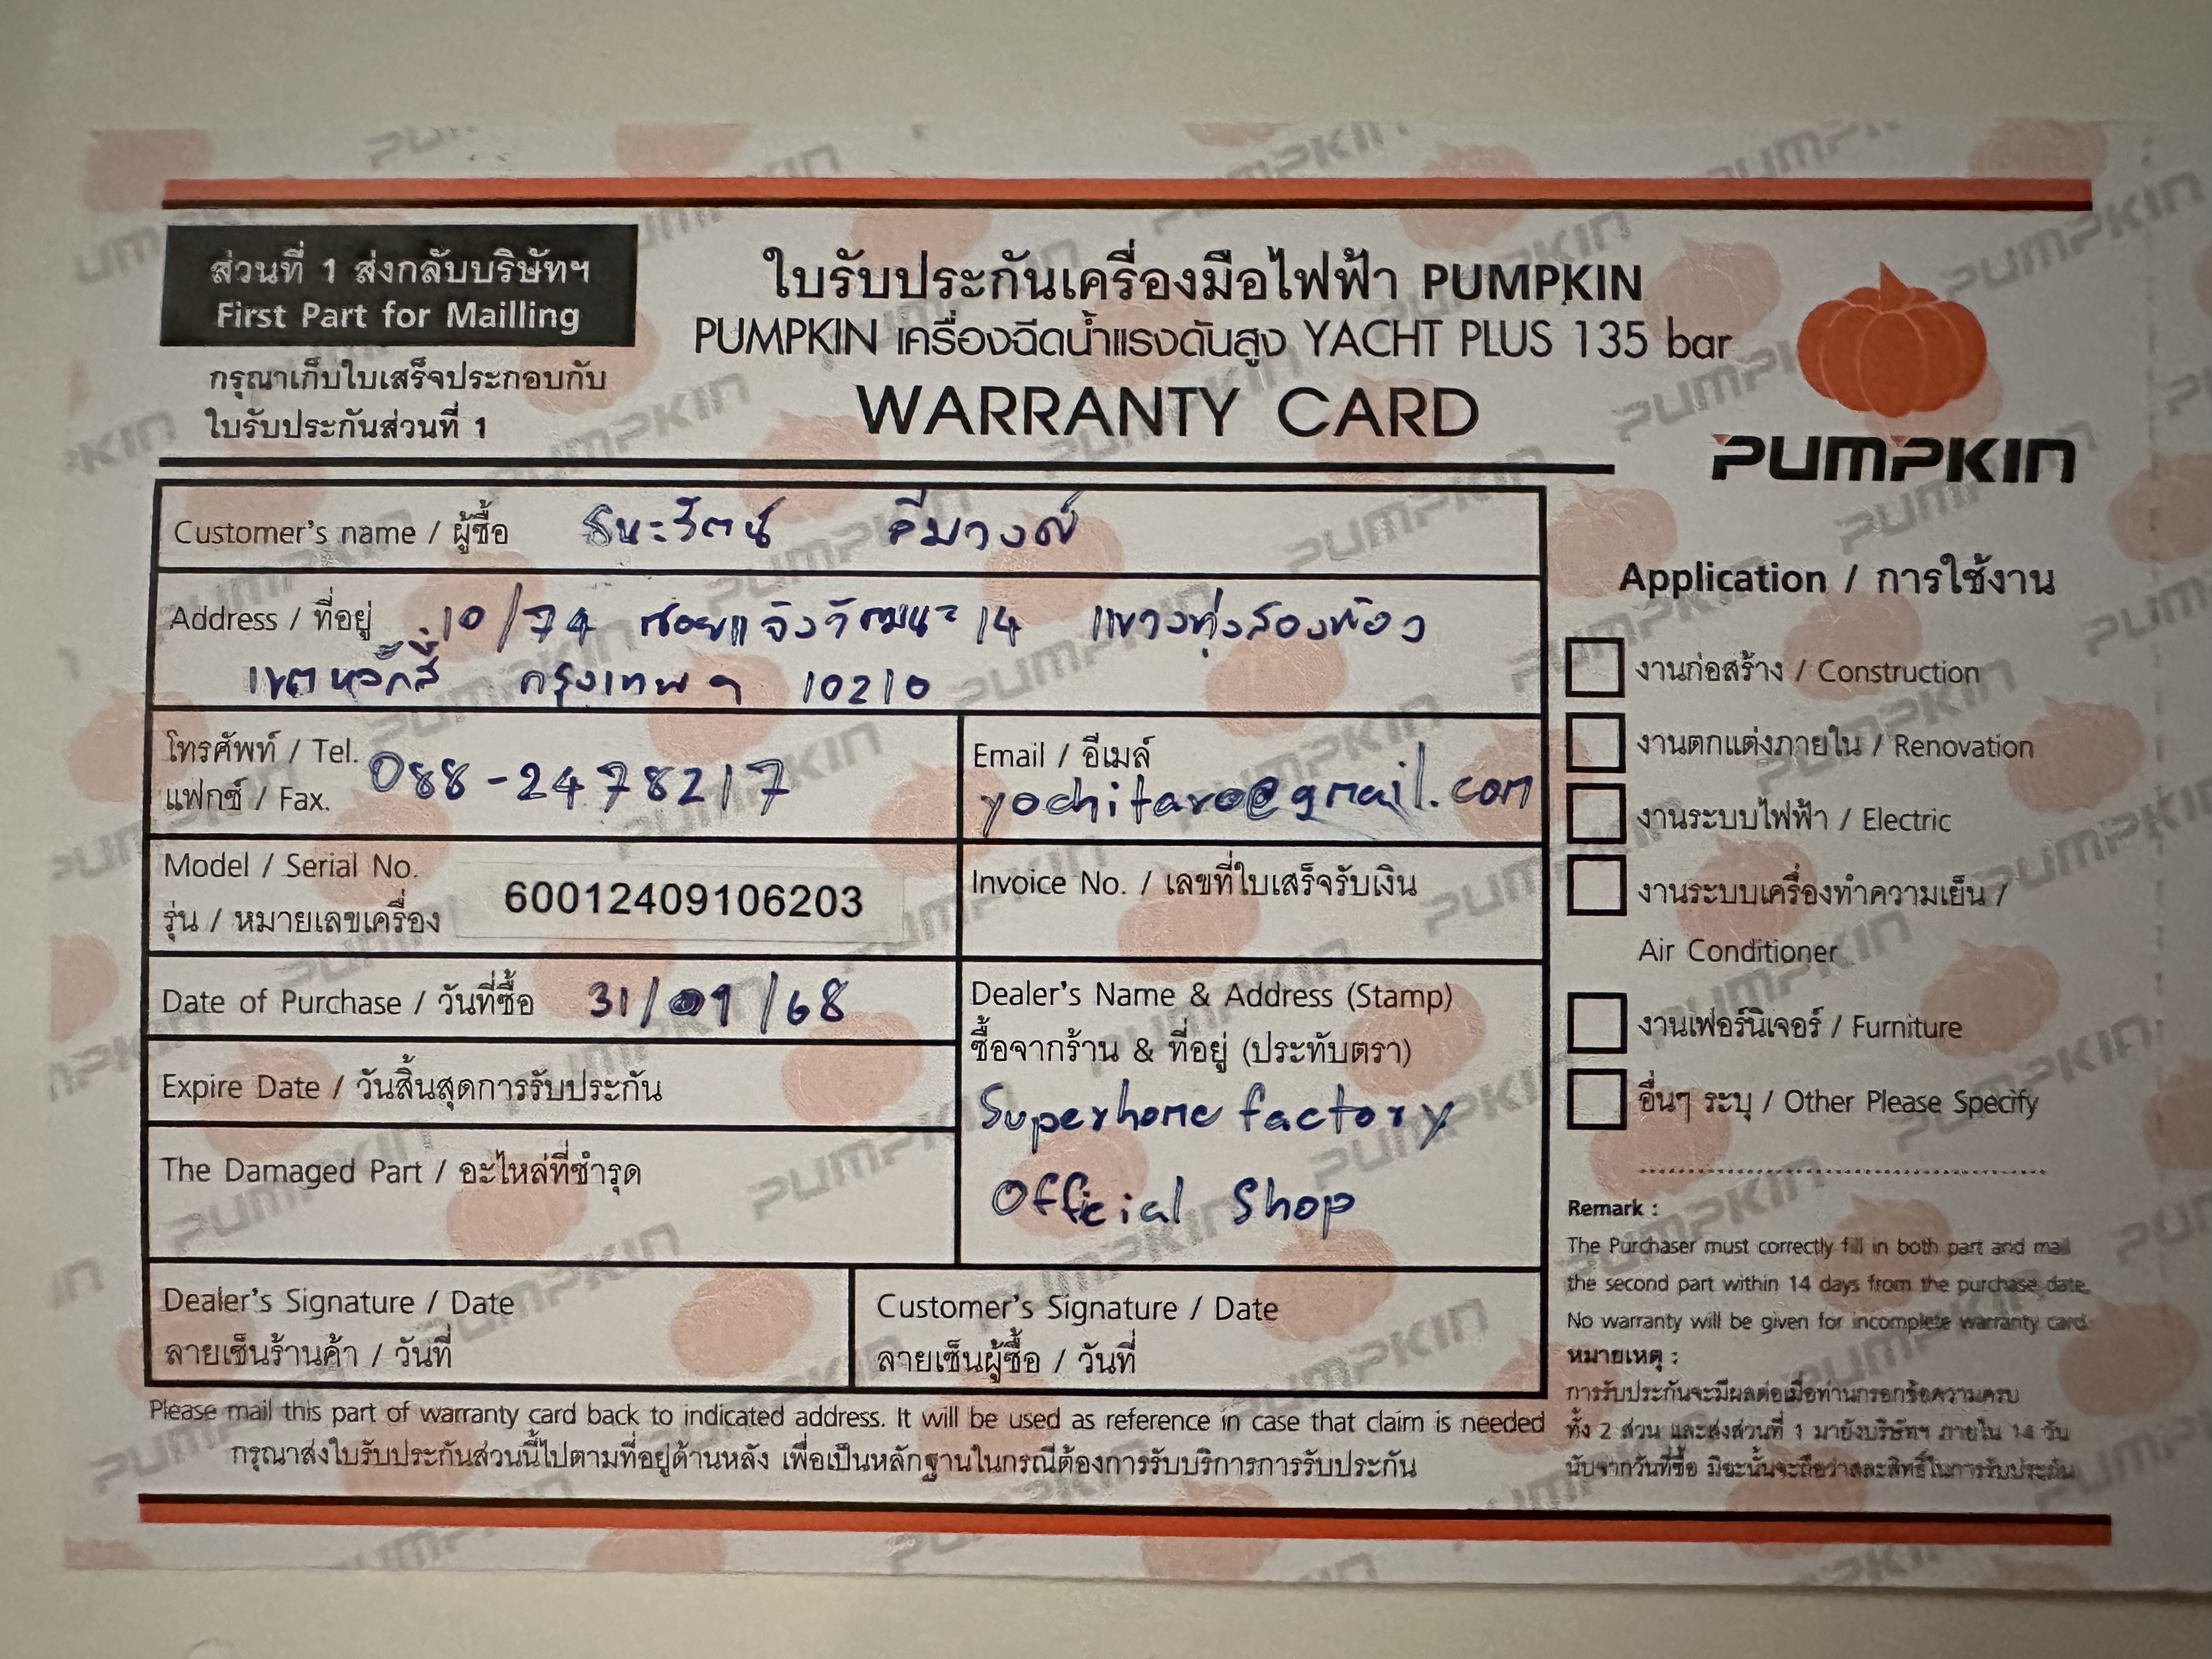 ส่วนที่ 1 ส่งกลับบริษัทฯ
First Part for Mailling
กรุณาเก็บใบเสร็จประกอบกับ
ใบรับประกันส่วนที่ 1
ใบรับประกันเครื่องมือไฟฟ้า PUMPKIN
PUMPKIN เครื่องฉีดน้ำแรงดันสูง YACHT PLUS 135 bar
WARRANTY CARD
PUMPKIN
Customer's name / ผู้ซื้อ ธนะรัตน์
Address / ที่อยู่ 10/74 ซอยแจ้งวัฒนะ 14 แขวงทุ่งสองห้อง
เขตหลักสี่ กรุงเทพฯ 10210
โทรศัพท์ / Tel. 088-2478217
แฟกซ์ / Fax.
Email / อีเมล์
yochitaro@gmail.com
Model / Serial No.
รุ่น / หมายเลขเครื่อง 60012409106203
Invoice No. / เลขที่ใบเสร็จรับเงิน
Date of Purchase / วันที่ซื้อ 31/01/68
Expire Date / วันสิ้นสุดการรับประกัน
The Damaged Part / อะไหล่ที่ชำรุด
Dealer's Name & Address (Stamp)
ซื้อจากร้าน & ที่อยู่ (ประทับตรา)
Superhome factory
Official Shop
Dealer's Signature / Date
ลายเซ็นร้านค้า / วันที่
Customer's Signature / Date
ลายเซ็นผู้ซื้อ / วันที่
Please mail this part of warranty card back to indicated address. It will be used as reference in case that claim is needed
กรุณาส่งใบรับประกันส่วนนี้ไปตามที่อยู่ด้านหลัง เพื่อเป็นหลักฐานในกรณีต้องการรับบริการการรับประกัน
Application / การใช้งาน
งานก่อสร้าง / Construction
งานตกแต่งภายใน / Renovation
งานระบบไฟฟ้า / Electric
งานระบบเครื่องทำความเย็น /
Air Conditioner
งานเฟอร์นิเจอร์ / Furniture
อื่นๆ ระบุ / Other Please Specify
Remark :
The Purchaser must correctly fill in both part and mail
the second part within 14 days from the purchase date.
No warranty will be given for incomplete warranty card.
หมายเหตุ :
การรับประกันจะมีผลต่อเมื่อท่านกรอกข้อความครบ
ทั้ง 2 ส่วน และส่งส่วนที่ 1 มายังบริษัทฯ ภายใน 14 วัน
นับจากวันที่ซื้อ มิฉะนั้นจะถือว่าสละสิทธิ์ในการรับประกัน